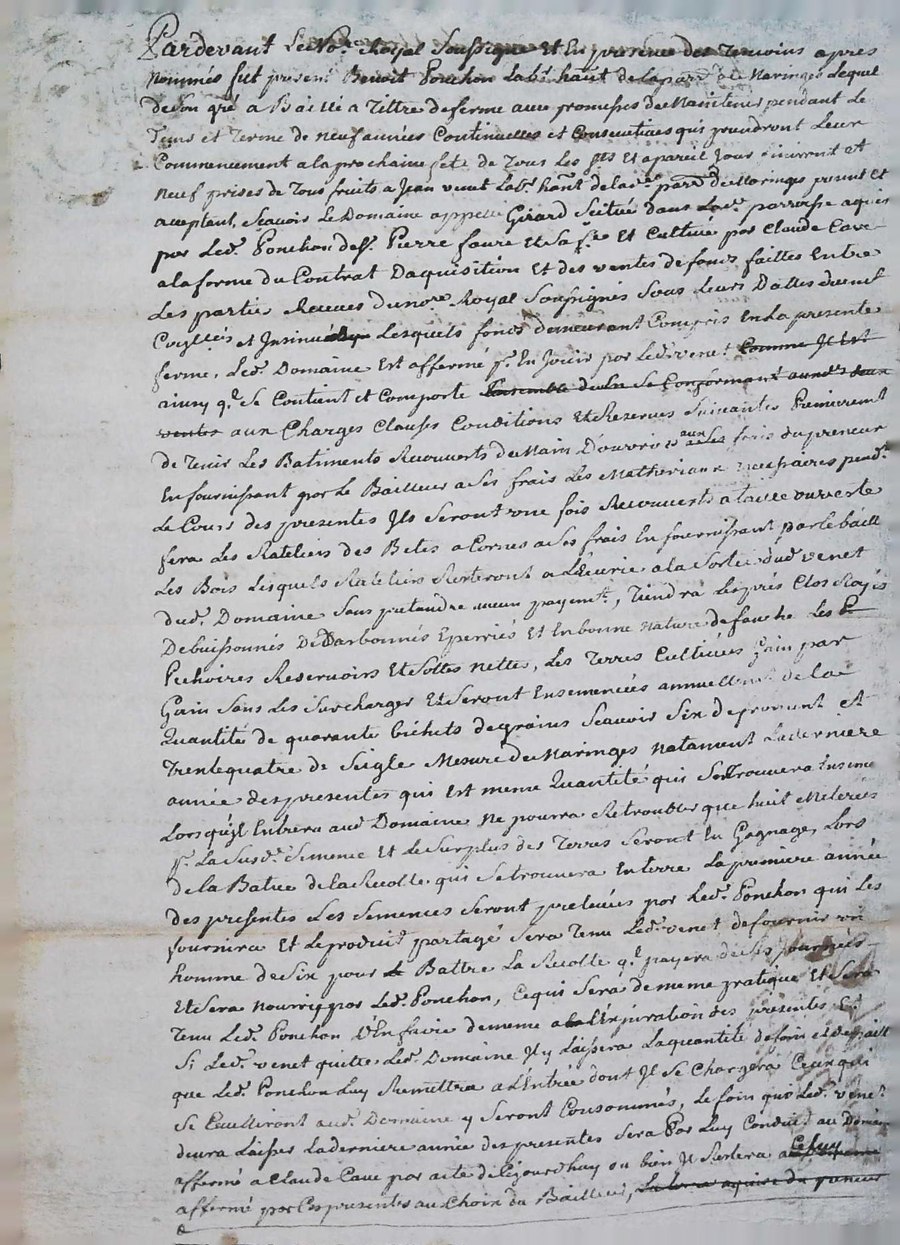 Pardevant Le No.re Royal Soussigné et En presence des Temoins apres
nommés fut present Benoit Ponchon Lab.r habt. de la parr.e de Maringes Lequel
de Son gré a Baillé a Tittre de ferme avec promesses de Maintenir pendant Le
Tems et Terme de neuf années Continuelles et Consecutives qui prendront Leur
Commencement a la prochaine fete de Tous Les Sts et a pareil Jour finiront et
neuf prises de Tous fruits a Jean venet Lab.r habt. de lad.e parr.e de Maringes present Et
acceptant, Scavoir Le Domaine appellé Girard Scitué dans Lad.e parroisse aquis
par Led.t Ponchon de Sr. Pierre faure Et Sa f.e Et Cultivé par Claude Cave
a la forme du Contrat Daquisition Et des ventes de fonds faittes Entre
Les parties Receues du no.re Royal Soussignés Sous Leurs Dattes
et Insinués Lesquels fonds demeurant Compris En La presente
ferme, Led.t Domaine Est affermé p.r En Jouir par Led.t venet Comme Il Est
ainsy q.l Se Contient et Comporte Ensemble Se Conformant
ventes aux Charges Clauses Conditions Et Reserves Suivantes Premierement
de Tenir Les Batiments Recouverts de Main D'œuvre aux frais du preneur
En fournissant par Le Bailleur a Ses frais Les Matheriaux necessaires pend.t
Le Cours des presentes Ils Seront une fois Recouverts a taille ouverte
fera Les Rateliers des Betes a Cornes a Ses frais En fournissant par le baill.
Les Bois Lesquels Rateliers Resteront a L'Ecurie a la Sortie dud.t venet
dud.t Domaine Sans pretendre aucun payem.t, Tiendra Les prés Clos Rayés
Debuissonnés Dedarbonnés Eperriés Et En bonne nature de fauche Les
Pechoires Reservoirs Et Sottes nettes, Les Terres Cultivées Gain par
Gain Sans Les Surcharger Et Seront Ensemencées annuellement de la
Quantité de quarante bichets de grains Scavoir Six de froment Et
Trente quatre de Seigle Mesure de Maringes notament La derniere
année des presentes qui Est meme Quantité qui Se Trouvera Ensemé
Lorsqu'il Entrera aud.t Domaine ne pourra Retroubler que huit Meterées
p.r La Susd.e Semence Et Le Surplus des Terres Seront En Gagnage, Lors
de la Batue de la Recolte qui Se trouvera En terre La premiere année
des presentes Les Semences Seront prelevées par Led.t Ponchon qui Les
fournira Et Le produit partagé Sera Tenu Led.t venet de fournir un
homme de Six pour Battre La Recolte q.l payera de Ses Journées
Et Sera nourri par Led.t Ponchon, Ce qui Sera de meme pratiqué Et Sera
Tenu Led.t Ponchon D'En faire de meme a L'Expiration des presentes Et
Si Led.t venet quitte Led.t Domaine Il y Laissera La quantité de foin et de paille
que Led.t Ponchon Luy Remettra a L'Entrée dont Il Se Chargera Ceux qui
Se Cueilliront aud.t Domaine y Seront Consommés, Le foin que Led.t venet
devra Laisser La derniere année des presentes Sera Par Luy Conduit au Domaine
affermé a Claude Cave par acte de Cejourdhuy ou bien Il Restera a Celuy
affermé par Ces presentes au Choix du Bailleur, La terre aquise du preneur